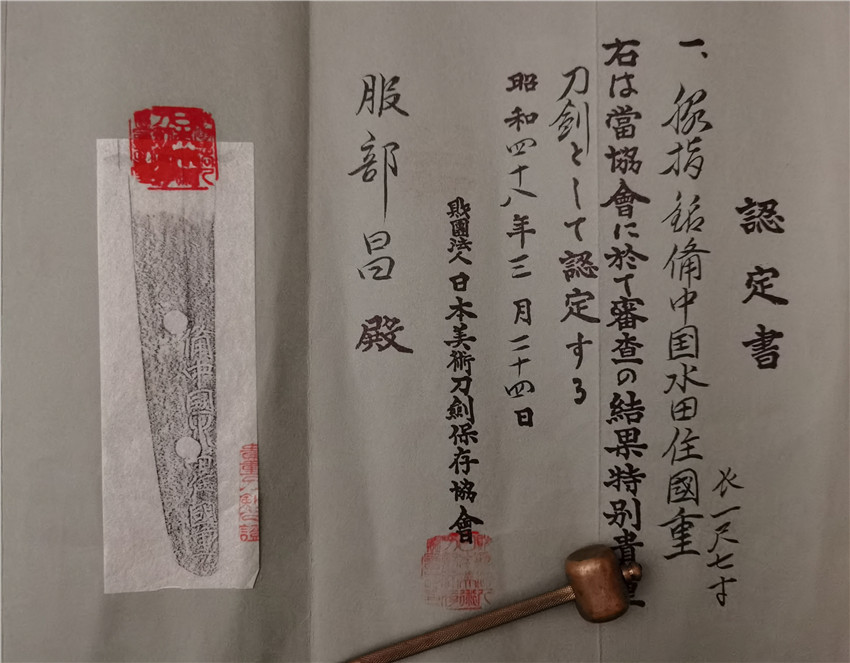 認定書
一、脇指 銘備中国水田住國重
長一尺七寸
右は當協會に於て審査の結果特別貴重
刀剣として認定する
昭和四十八年三月二十四日
財團法人日本美術刀劍保存協會
服部昌殿
備中國水田住國重